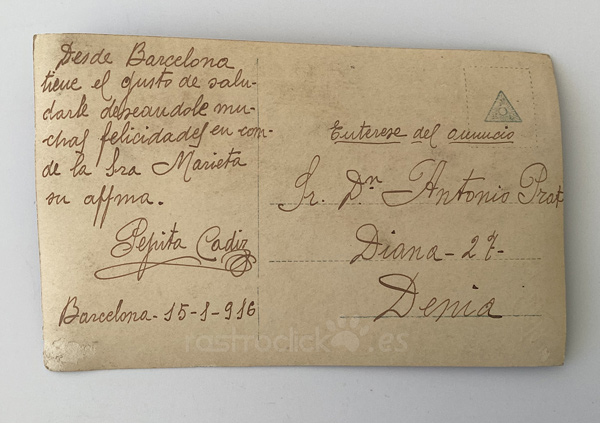 Desde Barcelona
tiene el gusto de salu-
darle deseandole mu-
chas felicidades en com-
de la Sra Marieta
su affma.
Pepita Cadiz
Barcelona-15-1-916
Enterese del anuncio
Sr. Dn Antonio Prat
Diana-27-
Denia
rastroclick.es